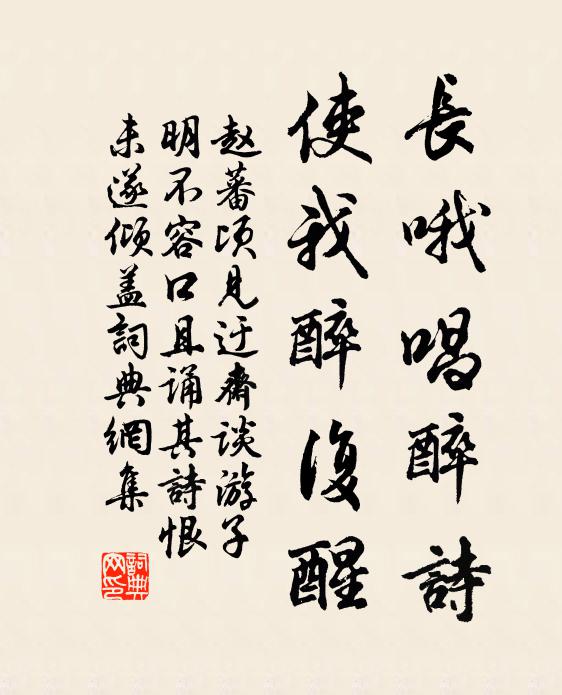 長哦唱醉詩
使我醉復醒
赵蕃顷見迂齋谈游子
明不容口且诵其詩恨
未遂倾盖詞典網集
詞典
网印